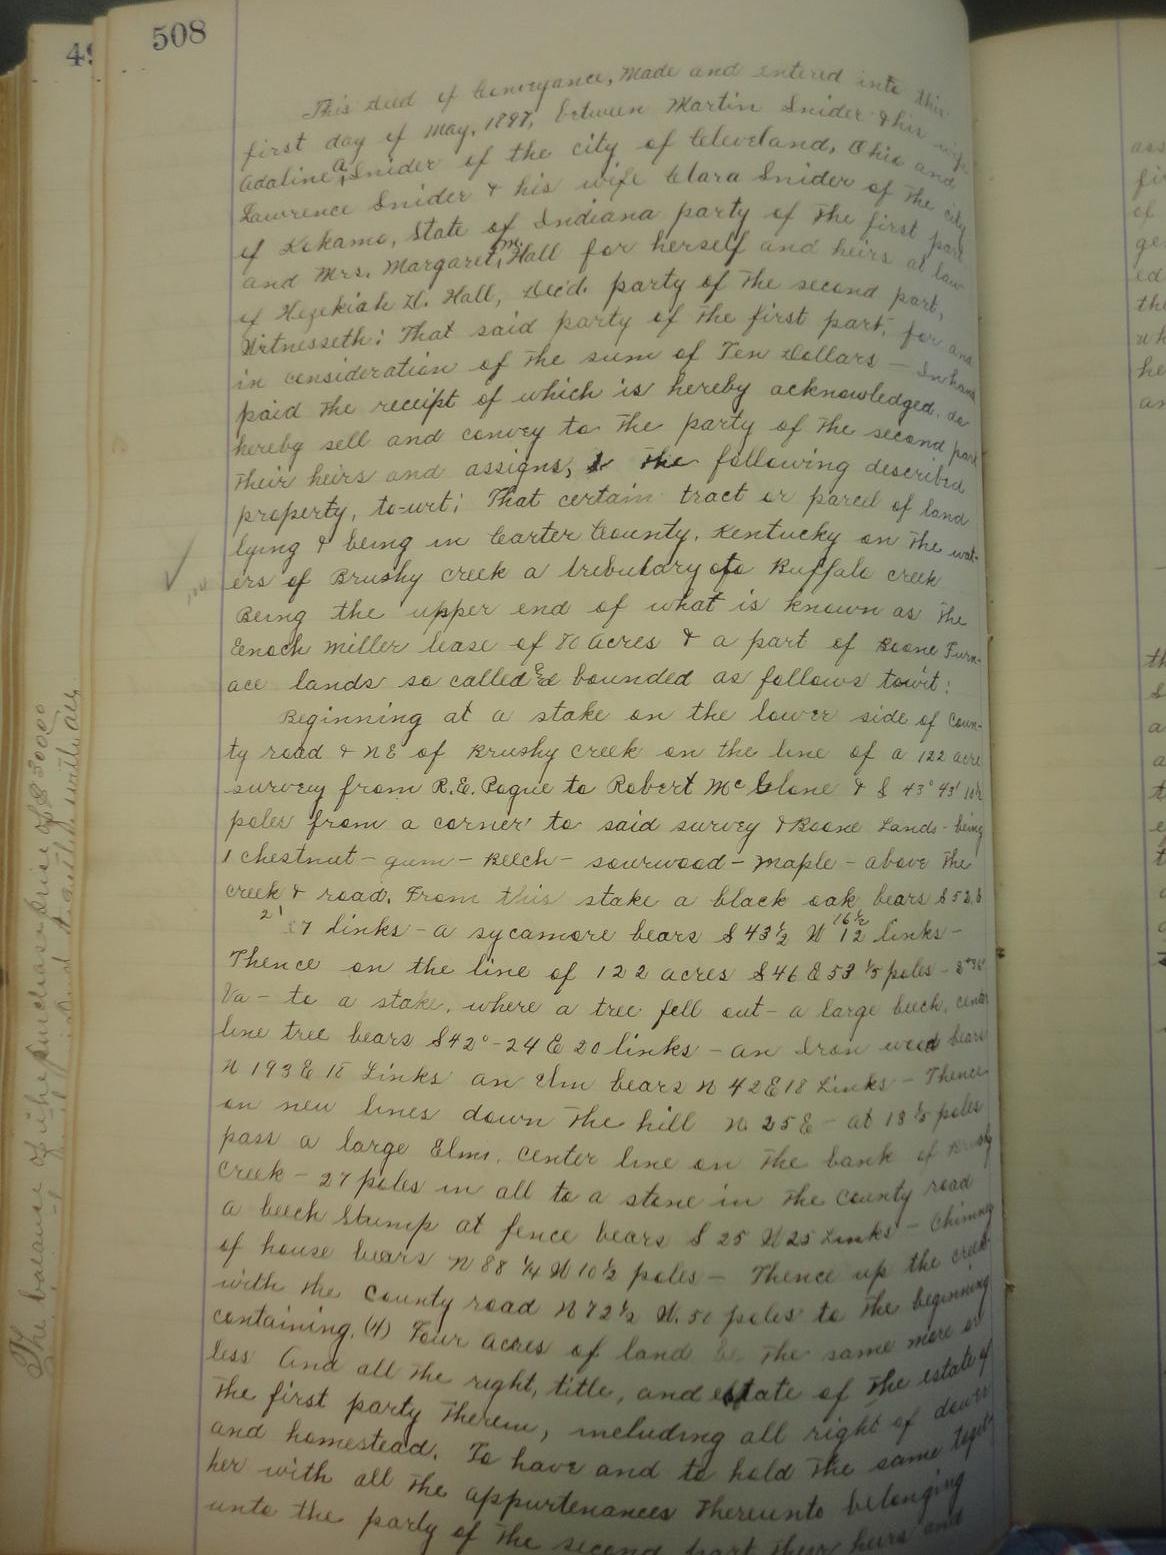 508
This deed of Conveyance, Made and entered into this
first day of May, 1897, between Martin Snider & his wife
Adaline A. Snider of the city of Cleveland, Ohio and
Lawrence Snider & his wife Clara Snider of the city
of Kokamo, State of Indiana party of the first part
and Mrs. Margaret M. Hall for herself and heirs at law
of Hezekiah H. Hall, Dec'd. party of the second part,
Witnesseth: That said party of the first part, for and
in consideration of the sum of Ten Dollars — In hand
paid the receipt of which is hereby acknowledged, do
hereby sell and convey to the party of the second part
their heirs and assigns, the following described
property, to-wit: That certain tract or parcel of land
lying & being in Carter County, Kentucky on the wat-
ers of Brushy creek a tributary of Buffalo creek
Being the upper end of what is known as the
Enoch Miller lease of 80 acres & a part of Boone Furn-
ace lands so called & bounded as follows towit:
Beginning at a stake on the lower side of Coun-
ty road & NE of Brushy Creek on the line of a 122 acre
survey from R.E. Pogue to Robert McGlone & S 43° 43'
poles from a corner to said survey & Boone Lands - being
1 chestnut - gum - Beech - sourwood - maple - above the
creek & road. From this stake a black oak bears
7 links - a sycamore bears S 43½ W links -
Thence on the line of 122 acres S 46 E 53 poles -
Va - to a stake, where a tree fell out - a large beech, center
line tree bears S 42° - 24 E 20 links - an Iron wood bears
N 193 E 18 Links an Elm bears N 42 E 18 Links - Thence
on new lines down the hill N 25 E - at poles
pass a large Elm, center line on the bank of Brushy
Creek - 27 poles in all to a stone in the County road
a beech Stump at fence bears S 25 W 25 Links - Chimney
of house bears N 88 ¼ W 10½ poles - Thence up the creek
with the County road N 72½ W. 50 poles to the beginning
containing, (4) Four acres of land be the same more or
less And all the right, title, and estate of the estate of
the first party Therein, including all right of dower
and homestead. To have and to hold the same toget
her with all the appurtenances Thereunto belonging
unto the party of the second part their heirs and
The balance of the purchase price of